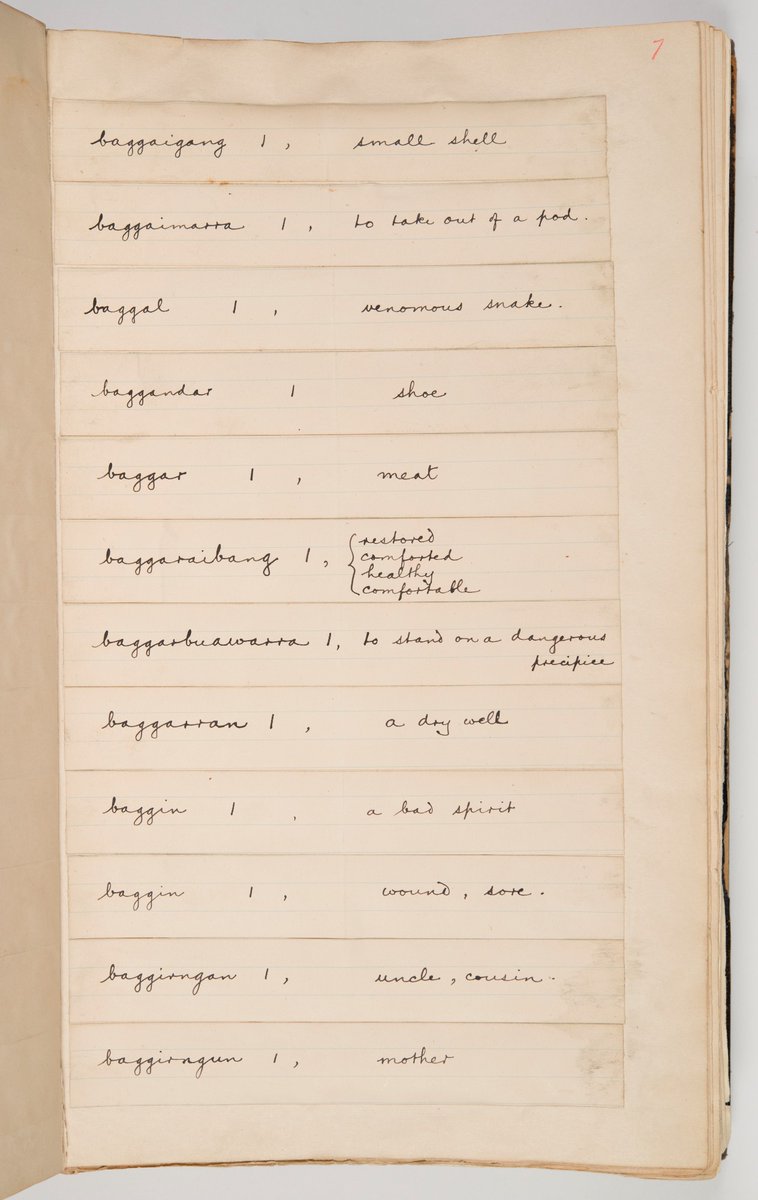 7
baggaigang 1, small shell
baggaimarra 1, to take out of a pod.
baggal 1, venomous snake.
baggandar 1 shoe
baggar 1, meat
baggaraibang 1, { restored
comforted
healthy
comfortable
baggarbuawarra 1, to stand on a dangerous
precipice
baggarran 1, a dry well
baggin 1, a bad spirit
baggin 1, wound, sore.
baggirngan 1, uncle, cousin.
baggirngun 1, mother